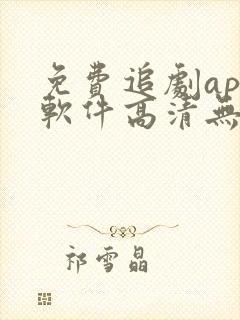 免費追劇ap
軟件高清無
祁雪晶